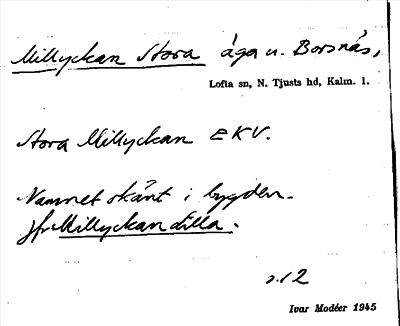 Millyckan Stora äga u. Borsnäs,
Lofta sn, N. Tjusts hd, Kalm. l.
Stora Millyckan EKV.
Namnet okänt i bygden.
jfr Millyckan Lilla.
s. 12
Ivar Modéer 1945